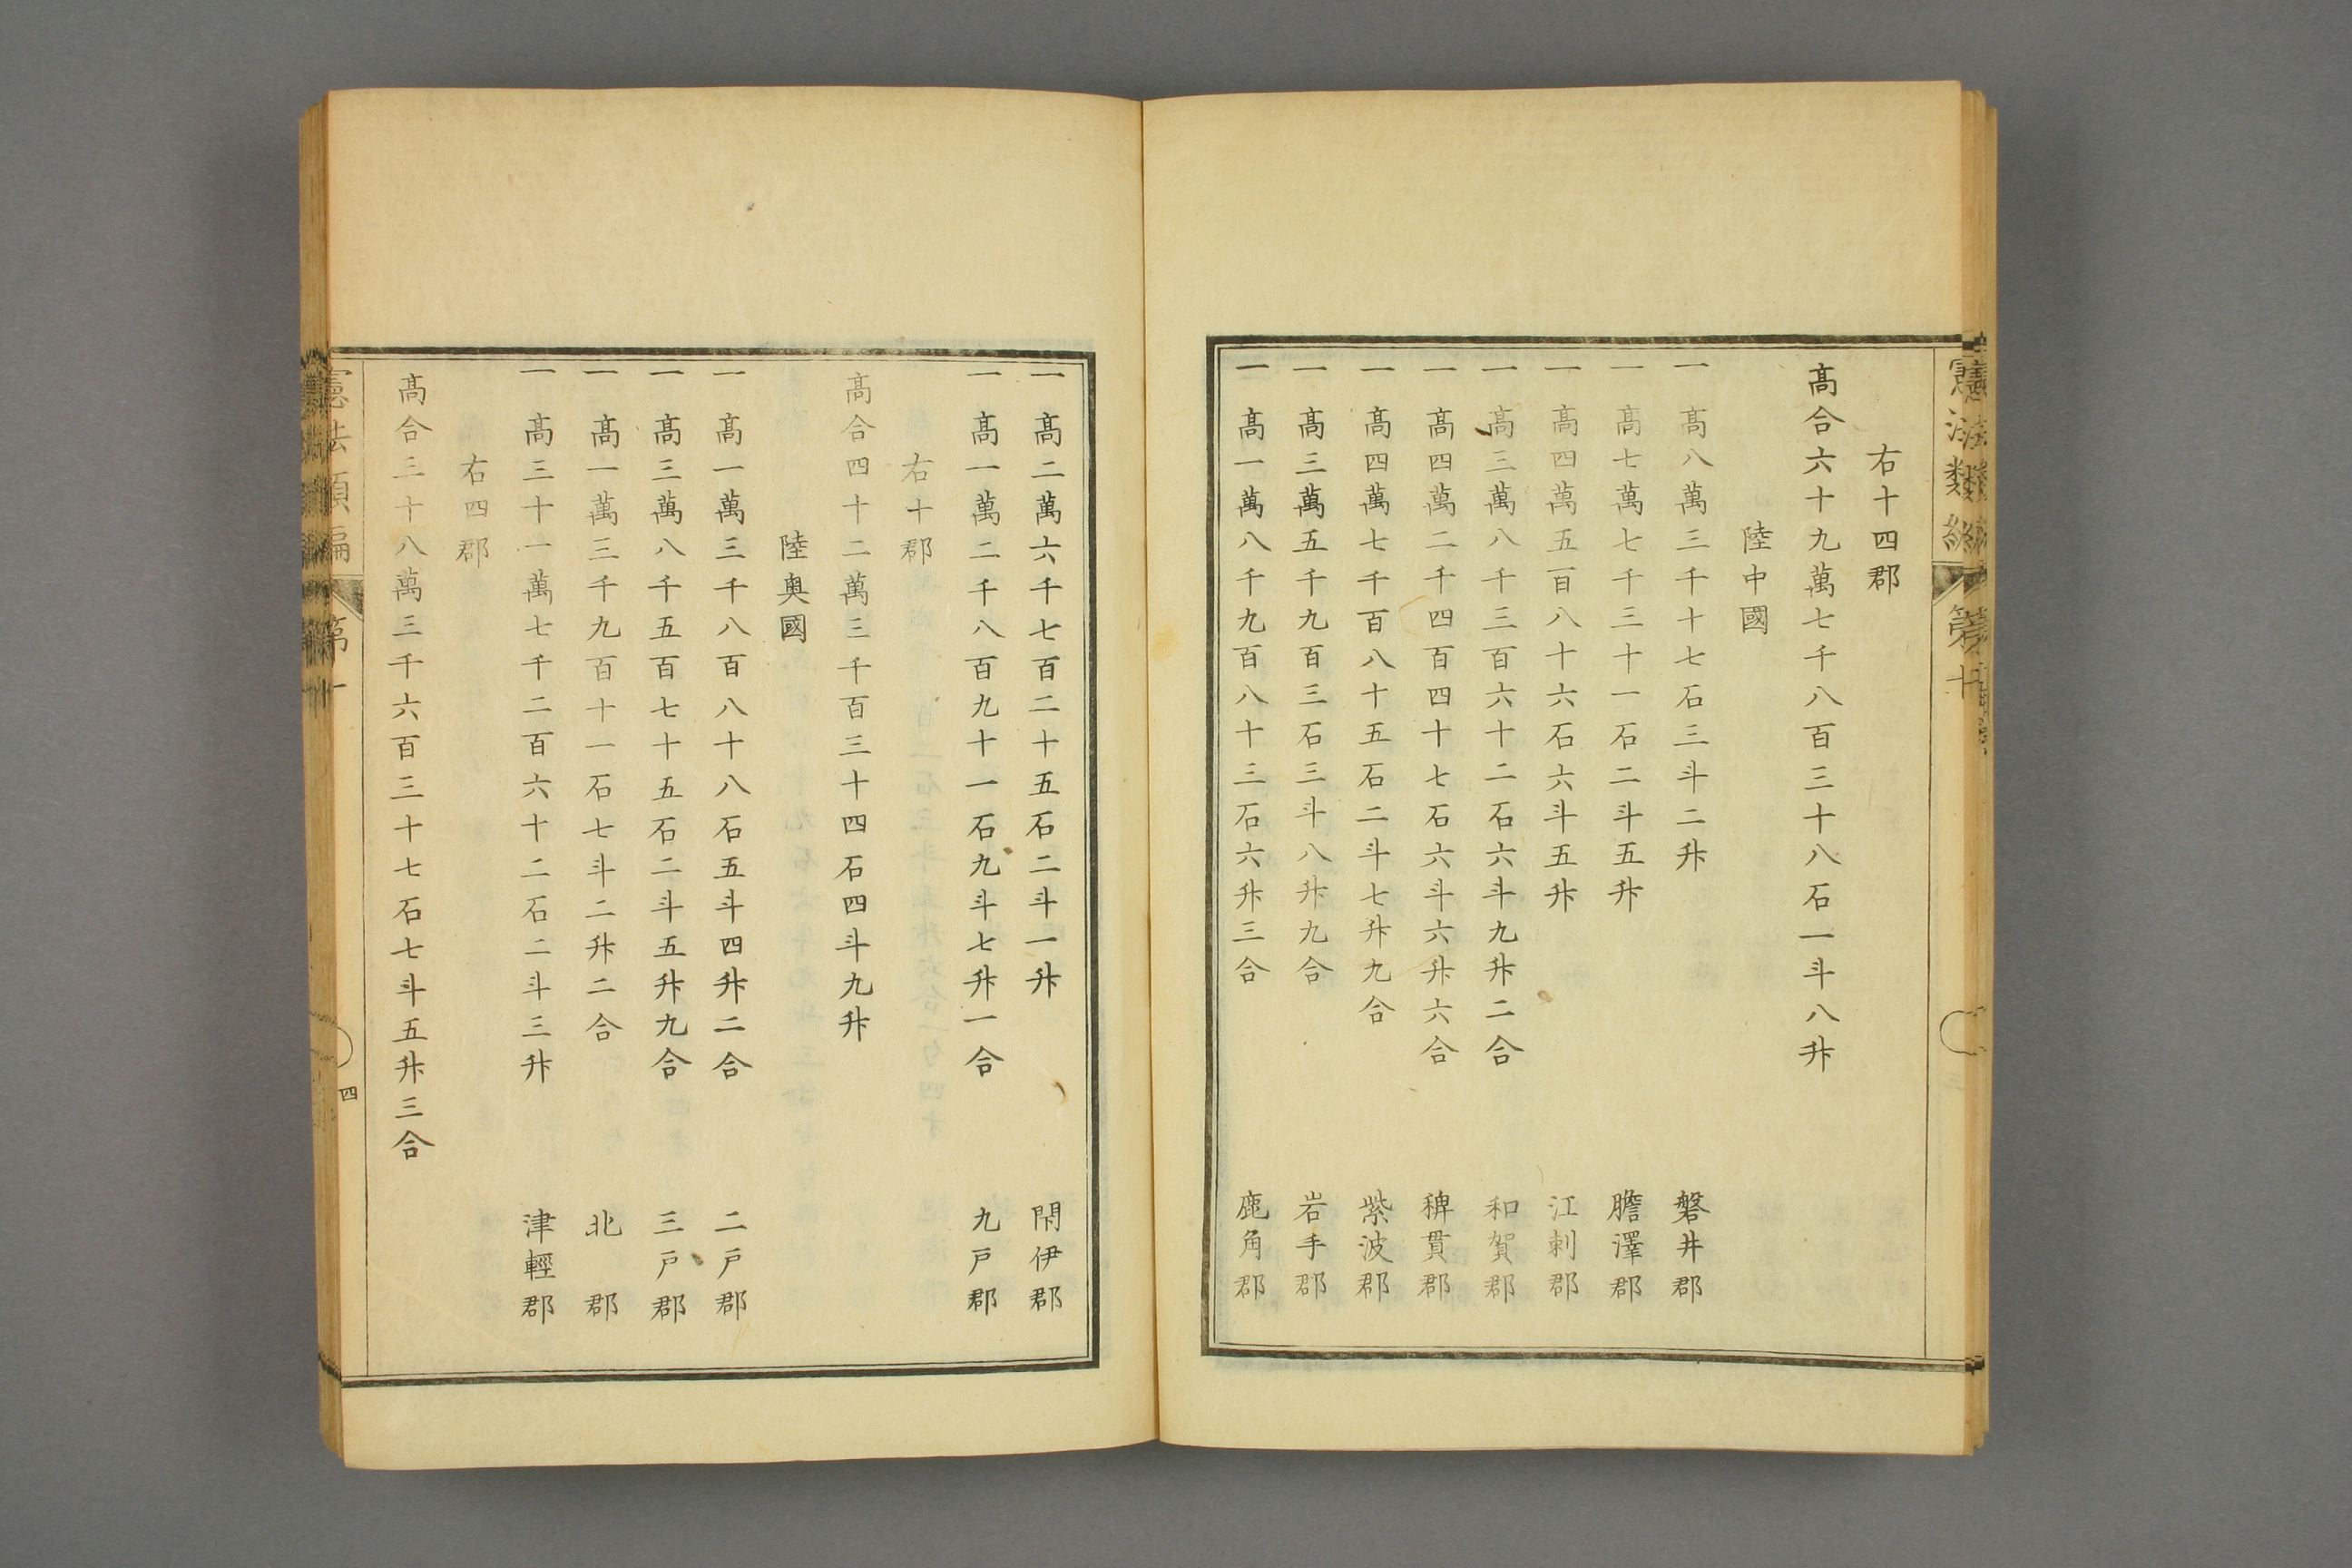 憲法類編 第十
右十四郡
高合六十九萬七千八百三十八石一斗八升
陸中國
一 高八萬三千十七石三斗二升 磐井郡
一 高七萬七千三十一石二斗五升 膽澤郡
一 高四萬五百八十六石六斗五升 江刺郡
一 高三萬八千三百六十二石六斗九升二合 和賀郡
一 高四萬二千四百四十七石六斗六升六合 稗貫郡
一 高四萬七千百八十五石二斗七升九合 紫波郡
一 高三萬五千九百三石三斗八升九合 岩手郡
一 高一萬八千九百八十三石六升三合 鹿角郡
一 高二萬六千七百二十五石二斗一升 閇伊郡
一 高一萬二千八百九十一石九斗七升一合 九戸郡
右十郡
高合四十二萬三千百三十四石四斗九升
陸奥國
一 高一萬三千八百八十八石五斗四升二合 二戸郡
一 高三萬八千五百七十五石二斗五升九合 三戸郡
一 高一萬三千九百十一石七斗二升二合 北郡
一 高三十一萬七千二百六十二石二斗三升 津輕郡
右四郡
高合三十八萬三千六百三十七石七斗五升三合
憲法類編 第十
四